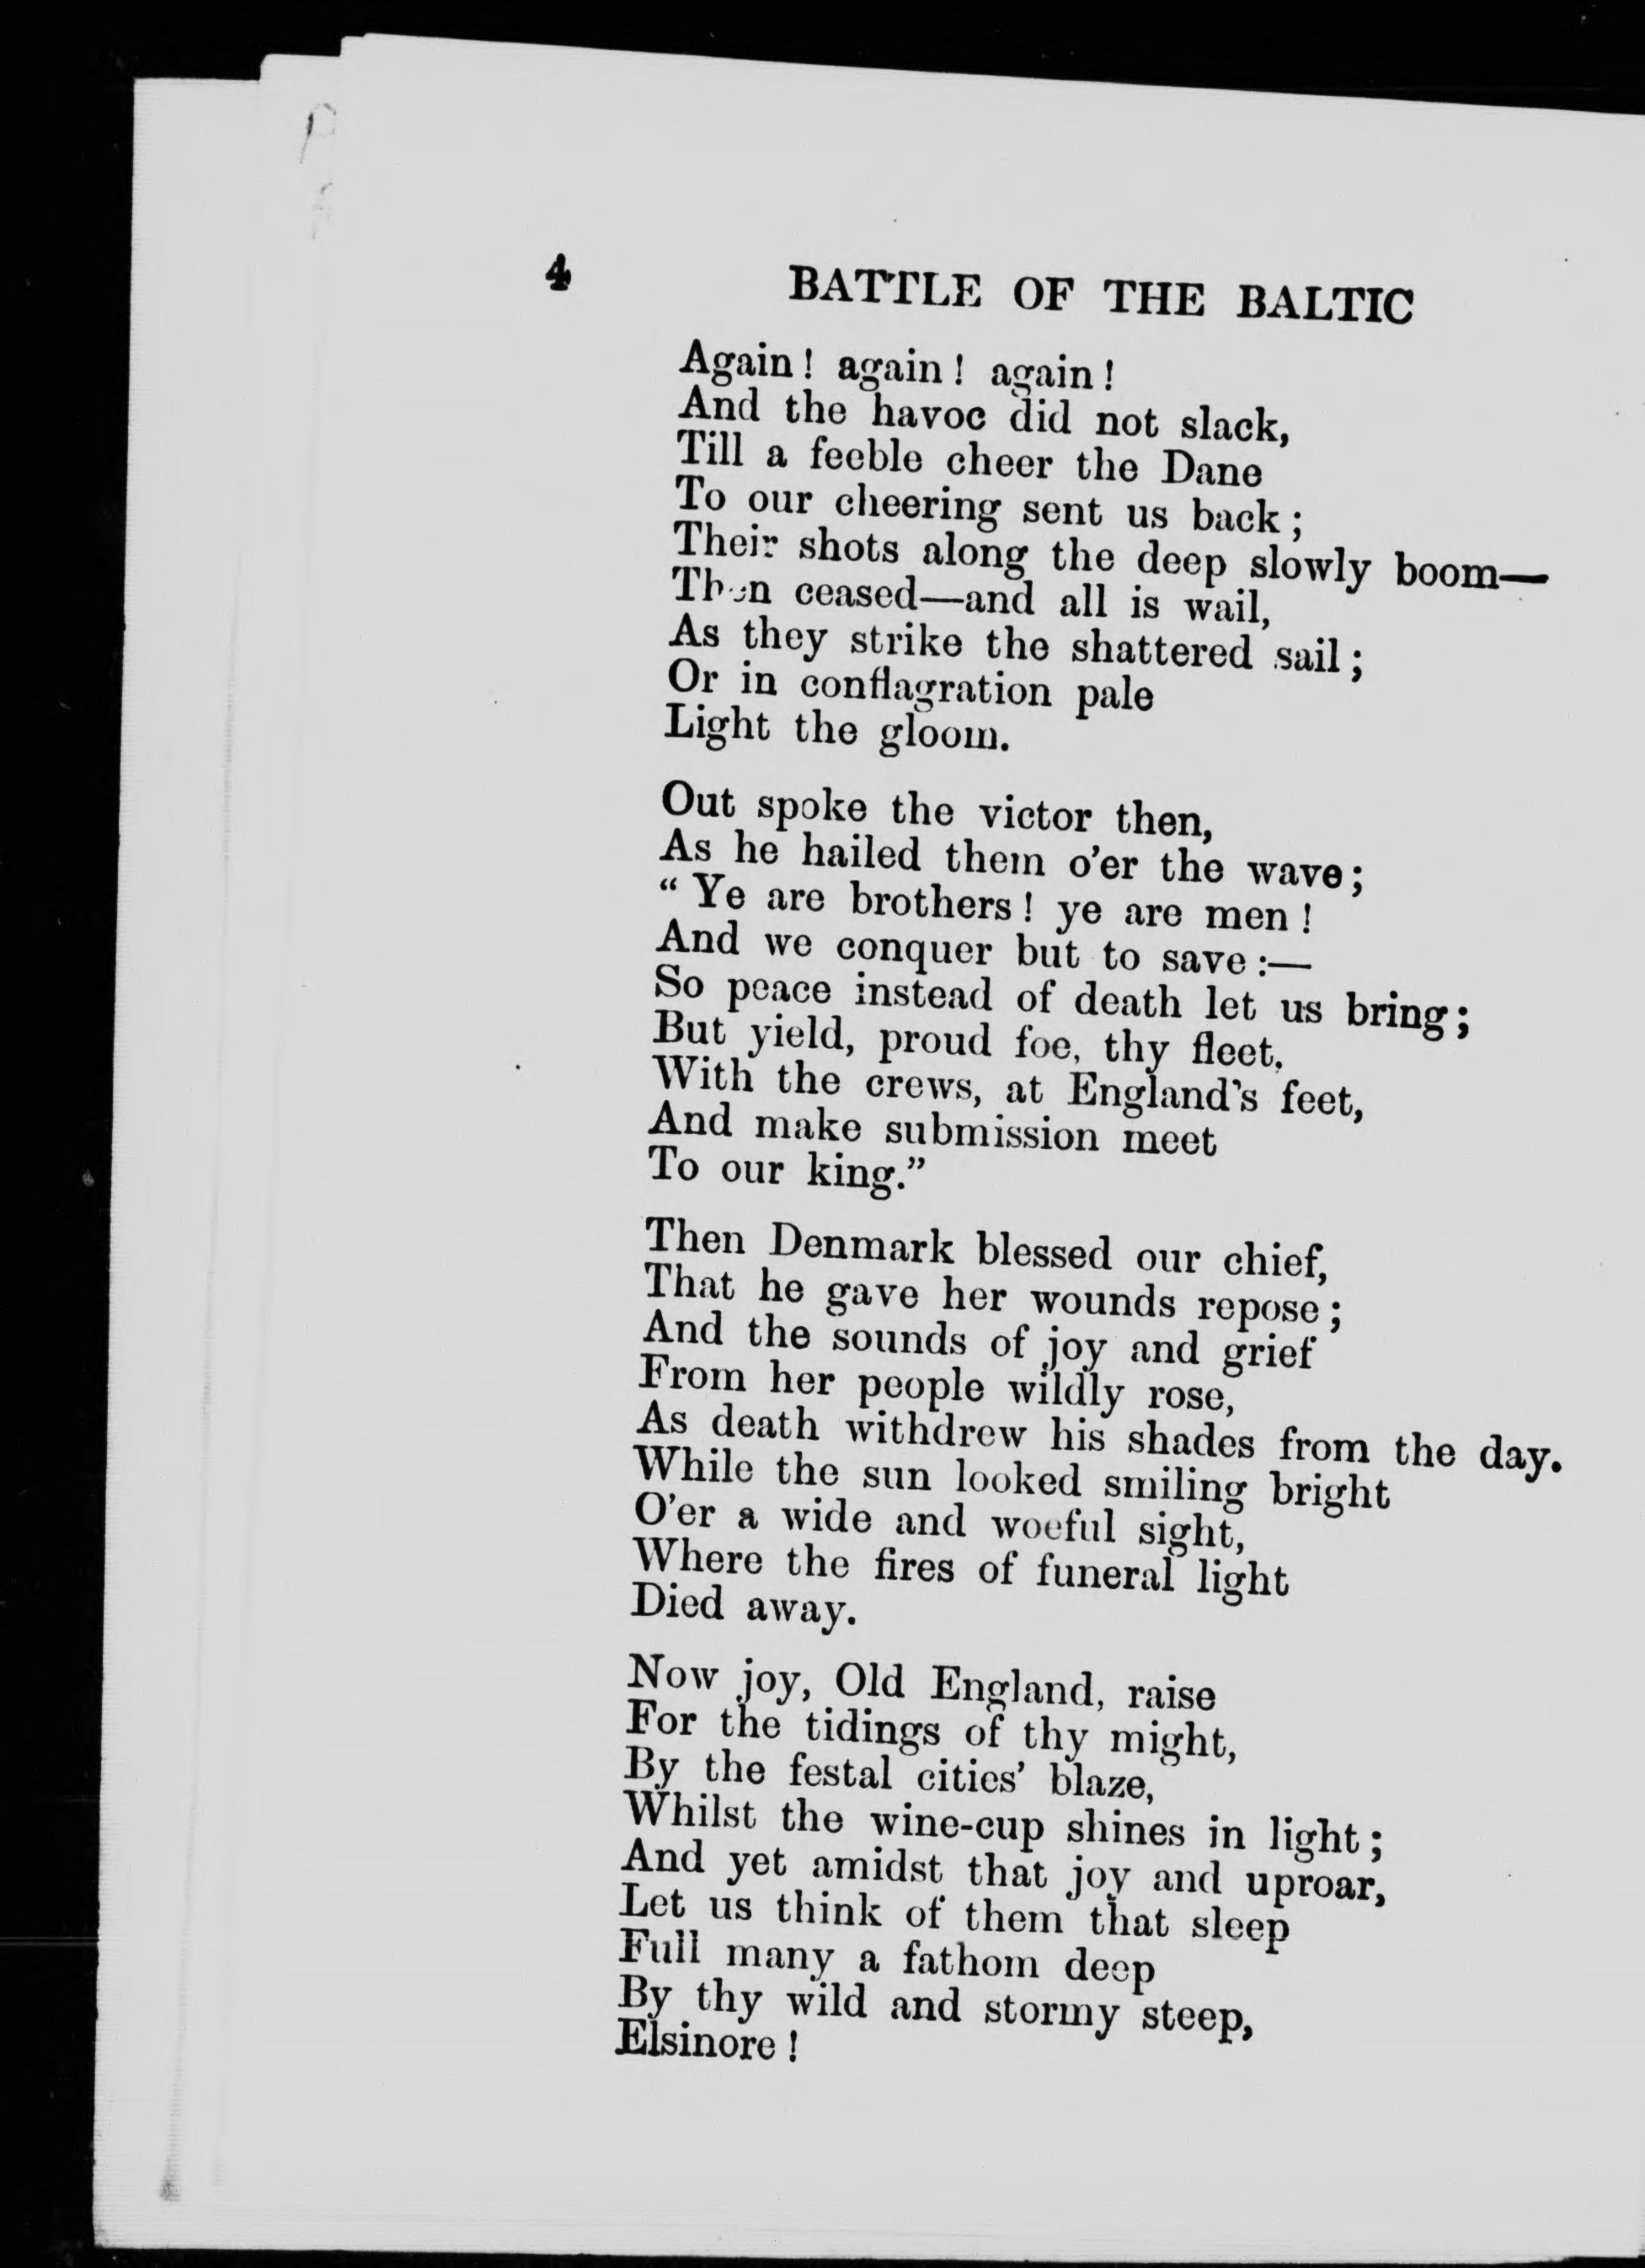 4 BATTLE OF THE BALTIC
Again! again! again!
And the havoc did not slack,
Till a feeble cheer the Dane
To our cheering sent us back;
Their shots along the deep slowly boom—
Then ceased—and all is wail,
As they strike the shattered sail;
Or in conflagration pale
Light the gloom.
Out spoke the victor then,
As he hailed them o'er the wave;
"Ye are brothers! ye are men!
And we conquer but to save:—
So peace instead of death let us bring;
But yield, proud foe, thy fleet,
With the crews, at England's feet,
And make submission meet
To our king."
Then Denmark blessed our chief,
That he gave her wounds repose;
And the sounds of joy and grief
From her people wildly rose,
As death withdrew his shades from the day.
While the sun looked smiling bright
O'er a wide and woeful sight,
Where the fires of funeral light
Died away.
Now joy, Old England, raise
For the tidings of thy might,
By the festal cities' blaze,
Whilst the wine-cup shines in light;
And yet amidst that joy and uproar,
Let us think of them that sleep
Full many a fathom deep
By thy wild and stormy steep,
Elsinore!